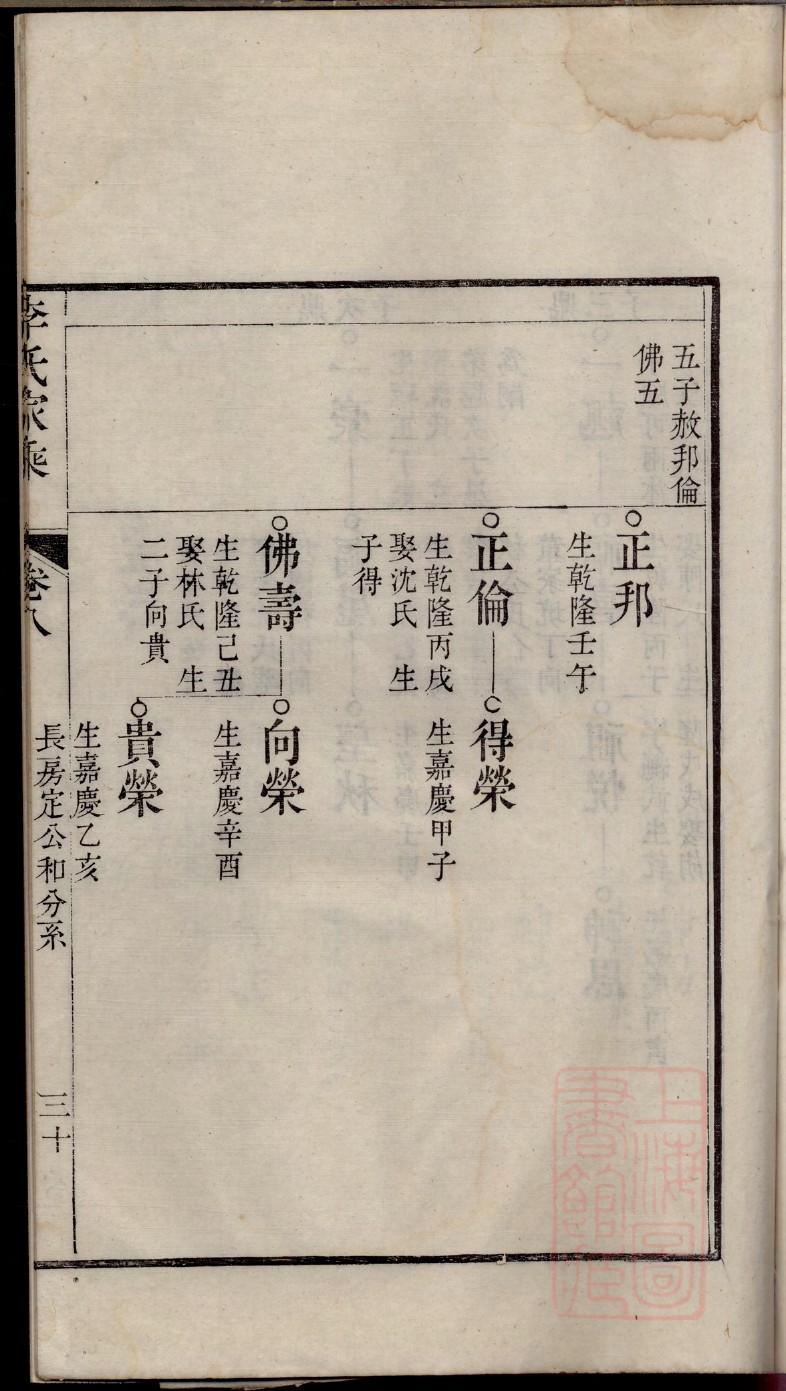 五子赦邦倫
佛五
正邦
生乾隆壬午
正倫
生乾隆丙戌
娶沈氏 生
子得
得榮
生嘉慶甲子
佛壽
生乾隆己丑
娶林氏 生
二子向貴
向榮
生嘉慶辛酉
貴榮
生嘉慶乙亥
李氏家乘
卷八
長房定公和分系
三十
上海圖
書館藏